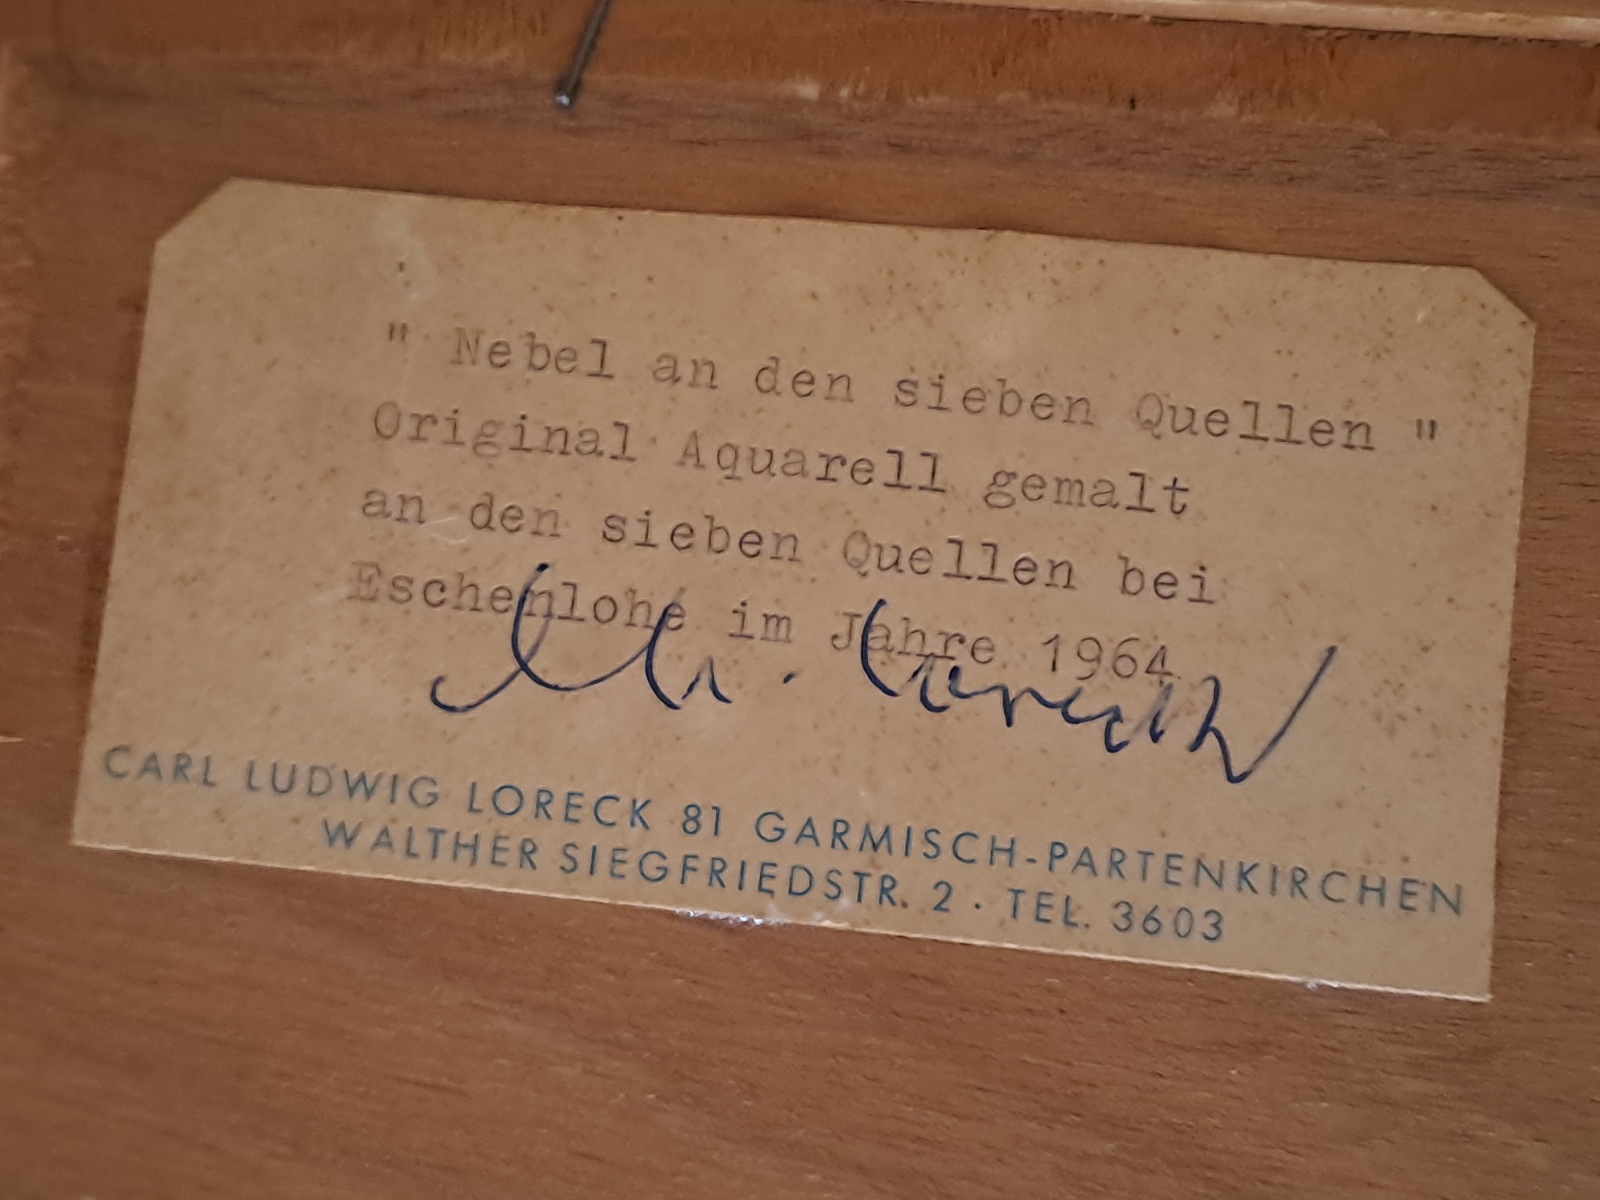 " Nebel an den sieben Quellen "
Original Aquarell gemalt
an den sieben Quellen bei
Eschenlohe im Jahre 1964
CARL LUDWIG LORECK 81 GARMISCH-PARTENKIRCHEN
WALTHER SIEGFRIEDSTR. 2 · TEL. 3603